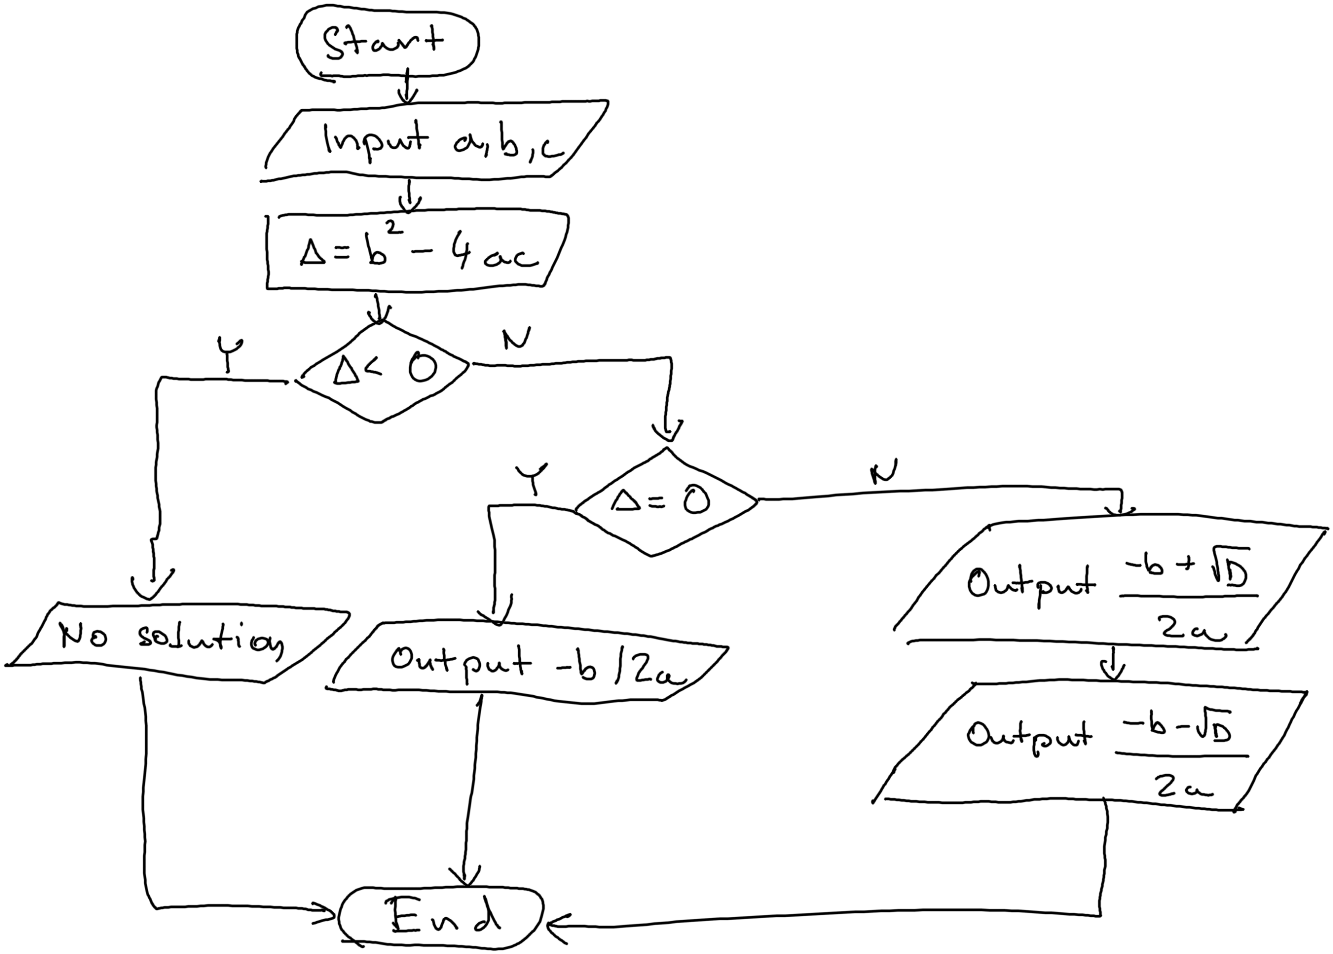 Start
Input a,b,c
Δ = b² - 4ac
Δ < 0
Y
N
Δ = 0
Y
N
No solution
Output -b/2a
Output (-b + √D)/2a
Output (-b - √D)/2a
End